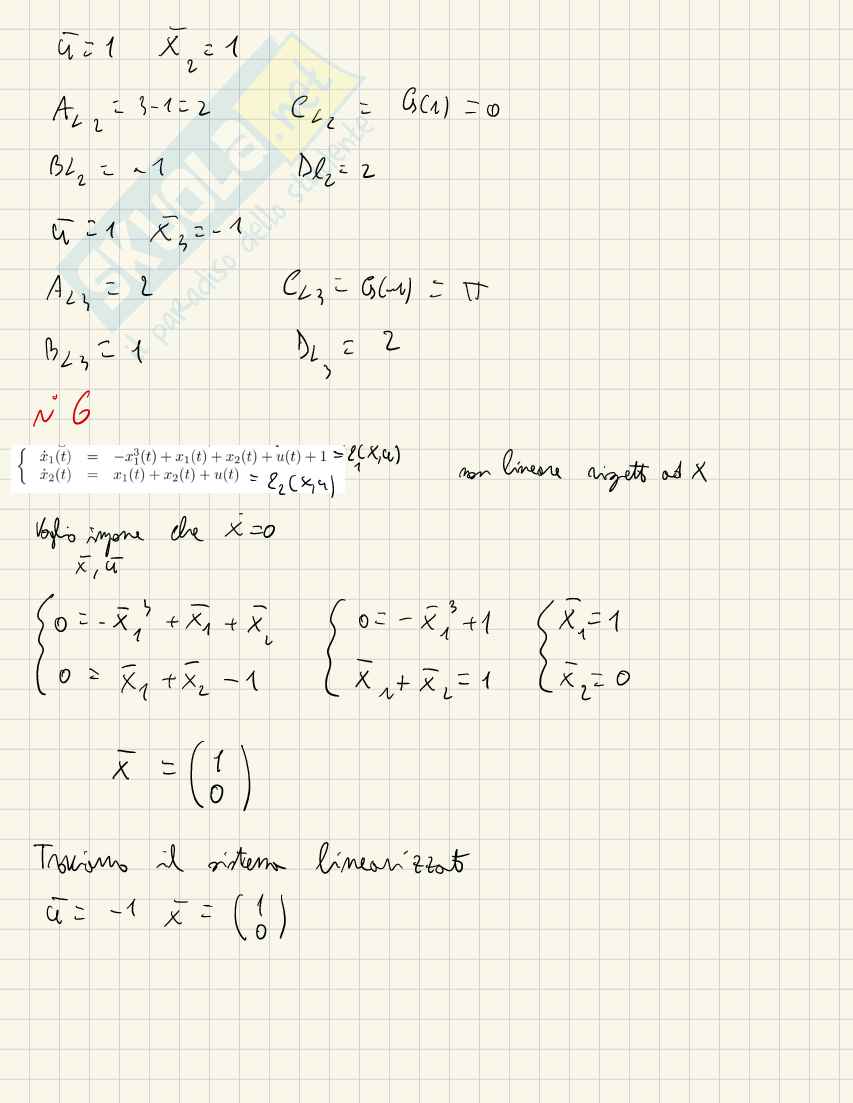 ū = 1 x̄₂ = 1
A_L₂ = 3-1 = 2 C_L₂ = G(1) = 0
B_L₂ = -1 D_L₂ = 2
ū = 1 x̄₃ = -1
A_L₃ = 2 C_L₃ = G(-1) = π
B_L₃ = 1 D_L₃ = 2
SKUOLA.net
il paradiso dello studente
N° 6
{ ẋ₁(t) = -x₁³(t) + x₁(t) + x₂(t) + u(t) + 1 = f₁(x,u)
ẋ₂(t) = x₁(t) + x₂(t) + u(t) = f₂(x,u)
non lineare rispetto ad x
Voglio imporre che ẋ = 0
x̄, ū
{ 0 = -x̄₁³ + x̄₁ + x̄₂ { 0 = -x̄₁³ + 1 { x̄₁ = 1
0 = x̄₁ + x̄₂ - 1 x̄₁ + x̄₂ = 1 x̄₂ = 0
x̄ = (1
0)
Troviamo il sistema linearizzato
ū = -1 x̄ = (1
0)